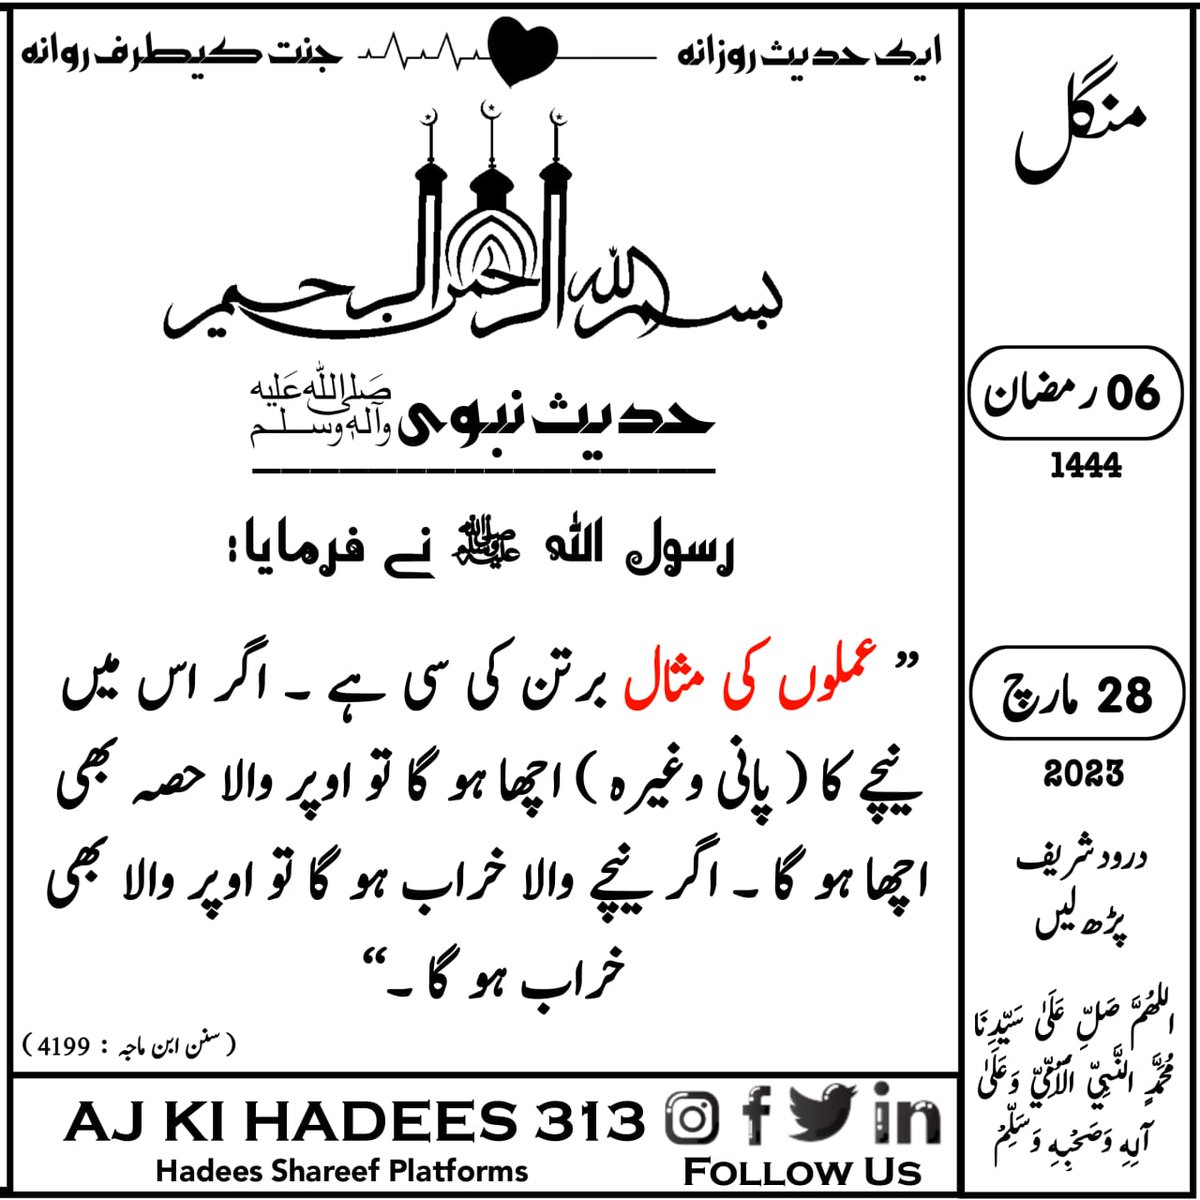 ایک حدیث روزانہ جنت کیطرف روانہ
بسم اللہ الرحمن الرحیم
حدیث نبوی صَلَّى اللهُ عَلَيْهِ وَآلِهٖ وَسَلَّم
رسول اللہ ﷺ نے فرمایا:
” عملوں کی مثال برتن کی سی ہے ۔ اگر اس میں
نیچے کا ( پانی وغیرہ ) اچھا ہو گا تو اوپر والا حصہ بھی
اچھا ہو گا ۔ اگر نیچے والا خراب ہو گا تو اوپر والا بھی
خراب ہو گا ۔“
( سنن ابن ماجہ : 4199 )
منگل
06 رمضان
1444
28 مارچ
2023
درود شریف
پڑھ لیں
اللھُمَّ صَلِّ عَلَىٰ سَيِّدِنَا
مُحَمَّدٍ النَّبِيِّ الْأُمِّيِّ وَعَلَىٰ
آلِهِ وَصَحْبِهِ وَسَلِّمْ
AJ KI HADEES 313
Hadees Shareef Platforms
FOLLOW US